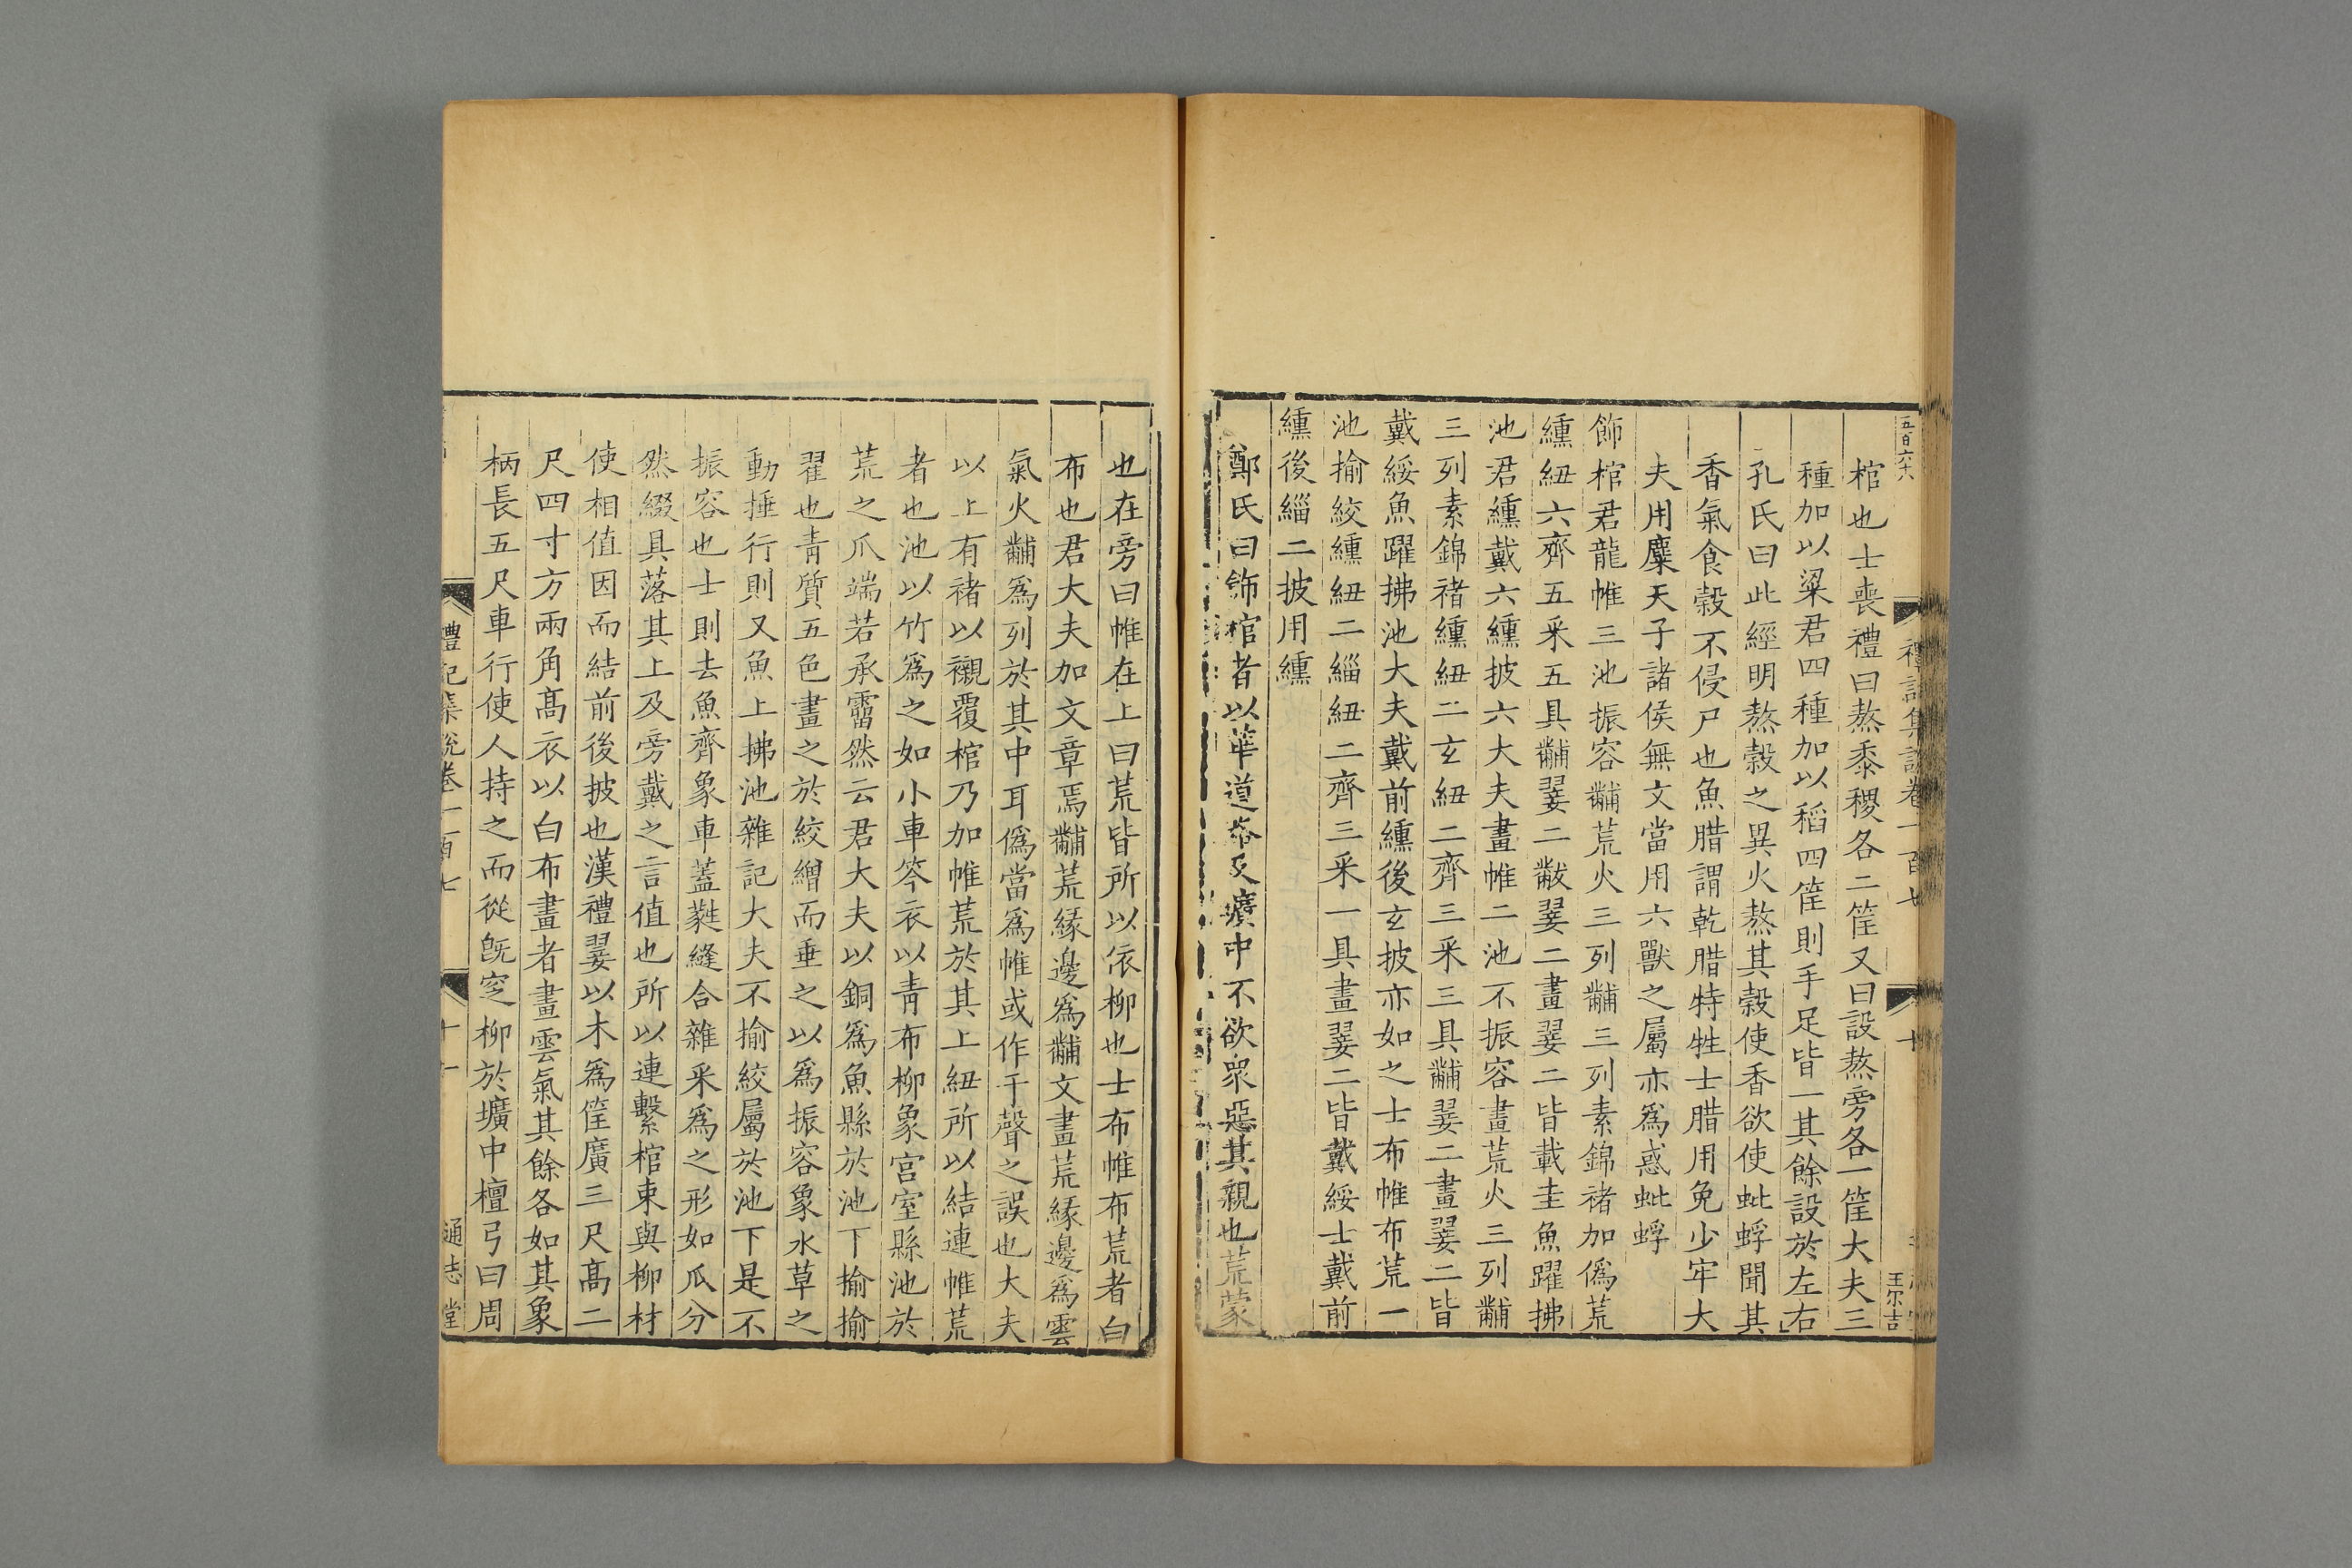 五百六十六
禮記集說卷一百七
十
王尔吉
棺也士喪禮曰熬黍稷各二筐又曰設熬旁各一筐大夫三
種加以粱君四種加以稻四筐則手足皆一其餘設於左右
孔氏曰此經明熬穀之異火熬其穀使香欲使蚍蜉聞其
香氣食穀不侵尸也魚腊謂乾腊特牲士腊用兔少牢大
夫用麋天子諸侯無文當用六獸之屬亦爲惑蚍蜉
飾棺君龍帷三池振容黼荒火三列黼三列素錦褚加僞荒
纁紐六齊五采五具黼翣二黻翣二畫翣二皆載圭魚躍拂
池君纁戴六纁披六大夫畫帷二池不振容畫荒火三列黼
三列素錦褚纁紐二玄紐二齊三采三具黼翣二畫翣二皆
戴綏魚躍拂池大夫戴前纁後玄披亦如之士布帷布荒一
池揄絞纁紐二緇紐二齊三采一具畫翣二皆戴綏士戴前
纁後緇二披用纁
鄭氏曰飾棺者以華道路及壙中不欲衆惡其親也荒蒙
也在旁曰帷在上曰荒皆所以依柳也士布帷布荒者白
布也君大夫加文章焉黼荒緣邊爲黼文畫荒緣邊爲雲
氣火黼爲列於其中耳僞當爲帷或作于聲之誤也大夫
以上有褚以襯覆棺乃加帷荒於其上紐所以結連帷荒
者也池以竹爲之如小車笭衣以青布柳象宮室縣池於
荒之爪端若承霤然云君大夫以銅爲魚縣於池下揄揄
翟也青質五色畫之於絞繒而垂之以爲振容象水草之
動捶行則又魚上拂池雜記大夫不揄絞屬於池下是不
振容也士則去魚齊象車蓋蕤縫合雜采爲之形如瓜分
然綴具落其上及旁戴之言值也所以連繫棺束與柳材
使相值因而結前後披也漢禮翣以木爲筐廣三尺高二
尺四寸方兩角高衣以白布畫者畫雲氣其餘各如其象
柄長五尺車行使人持之而從旣窆柳於壙中檀弓曰周
禮記集說卷一百七
十一
通志堂